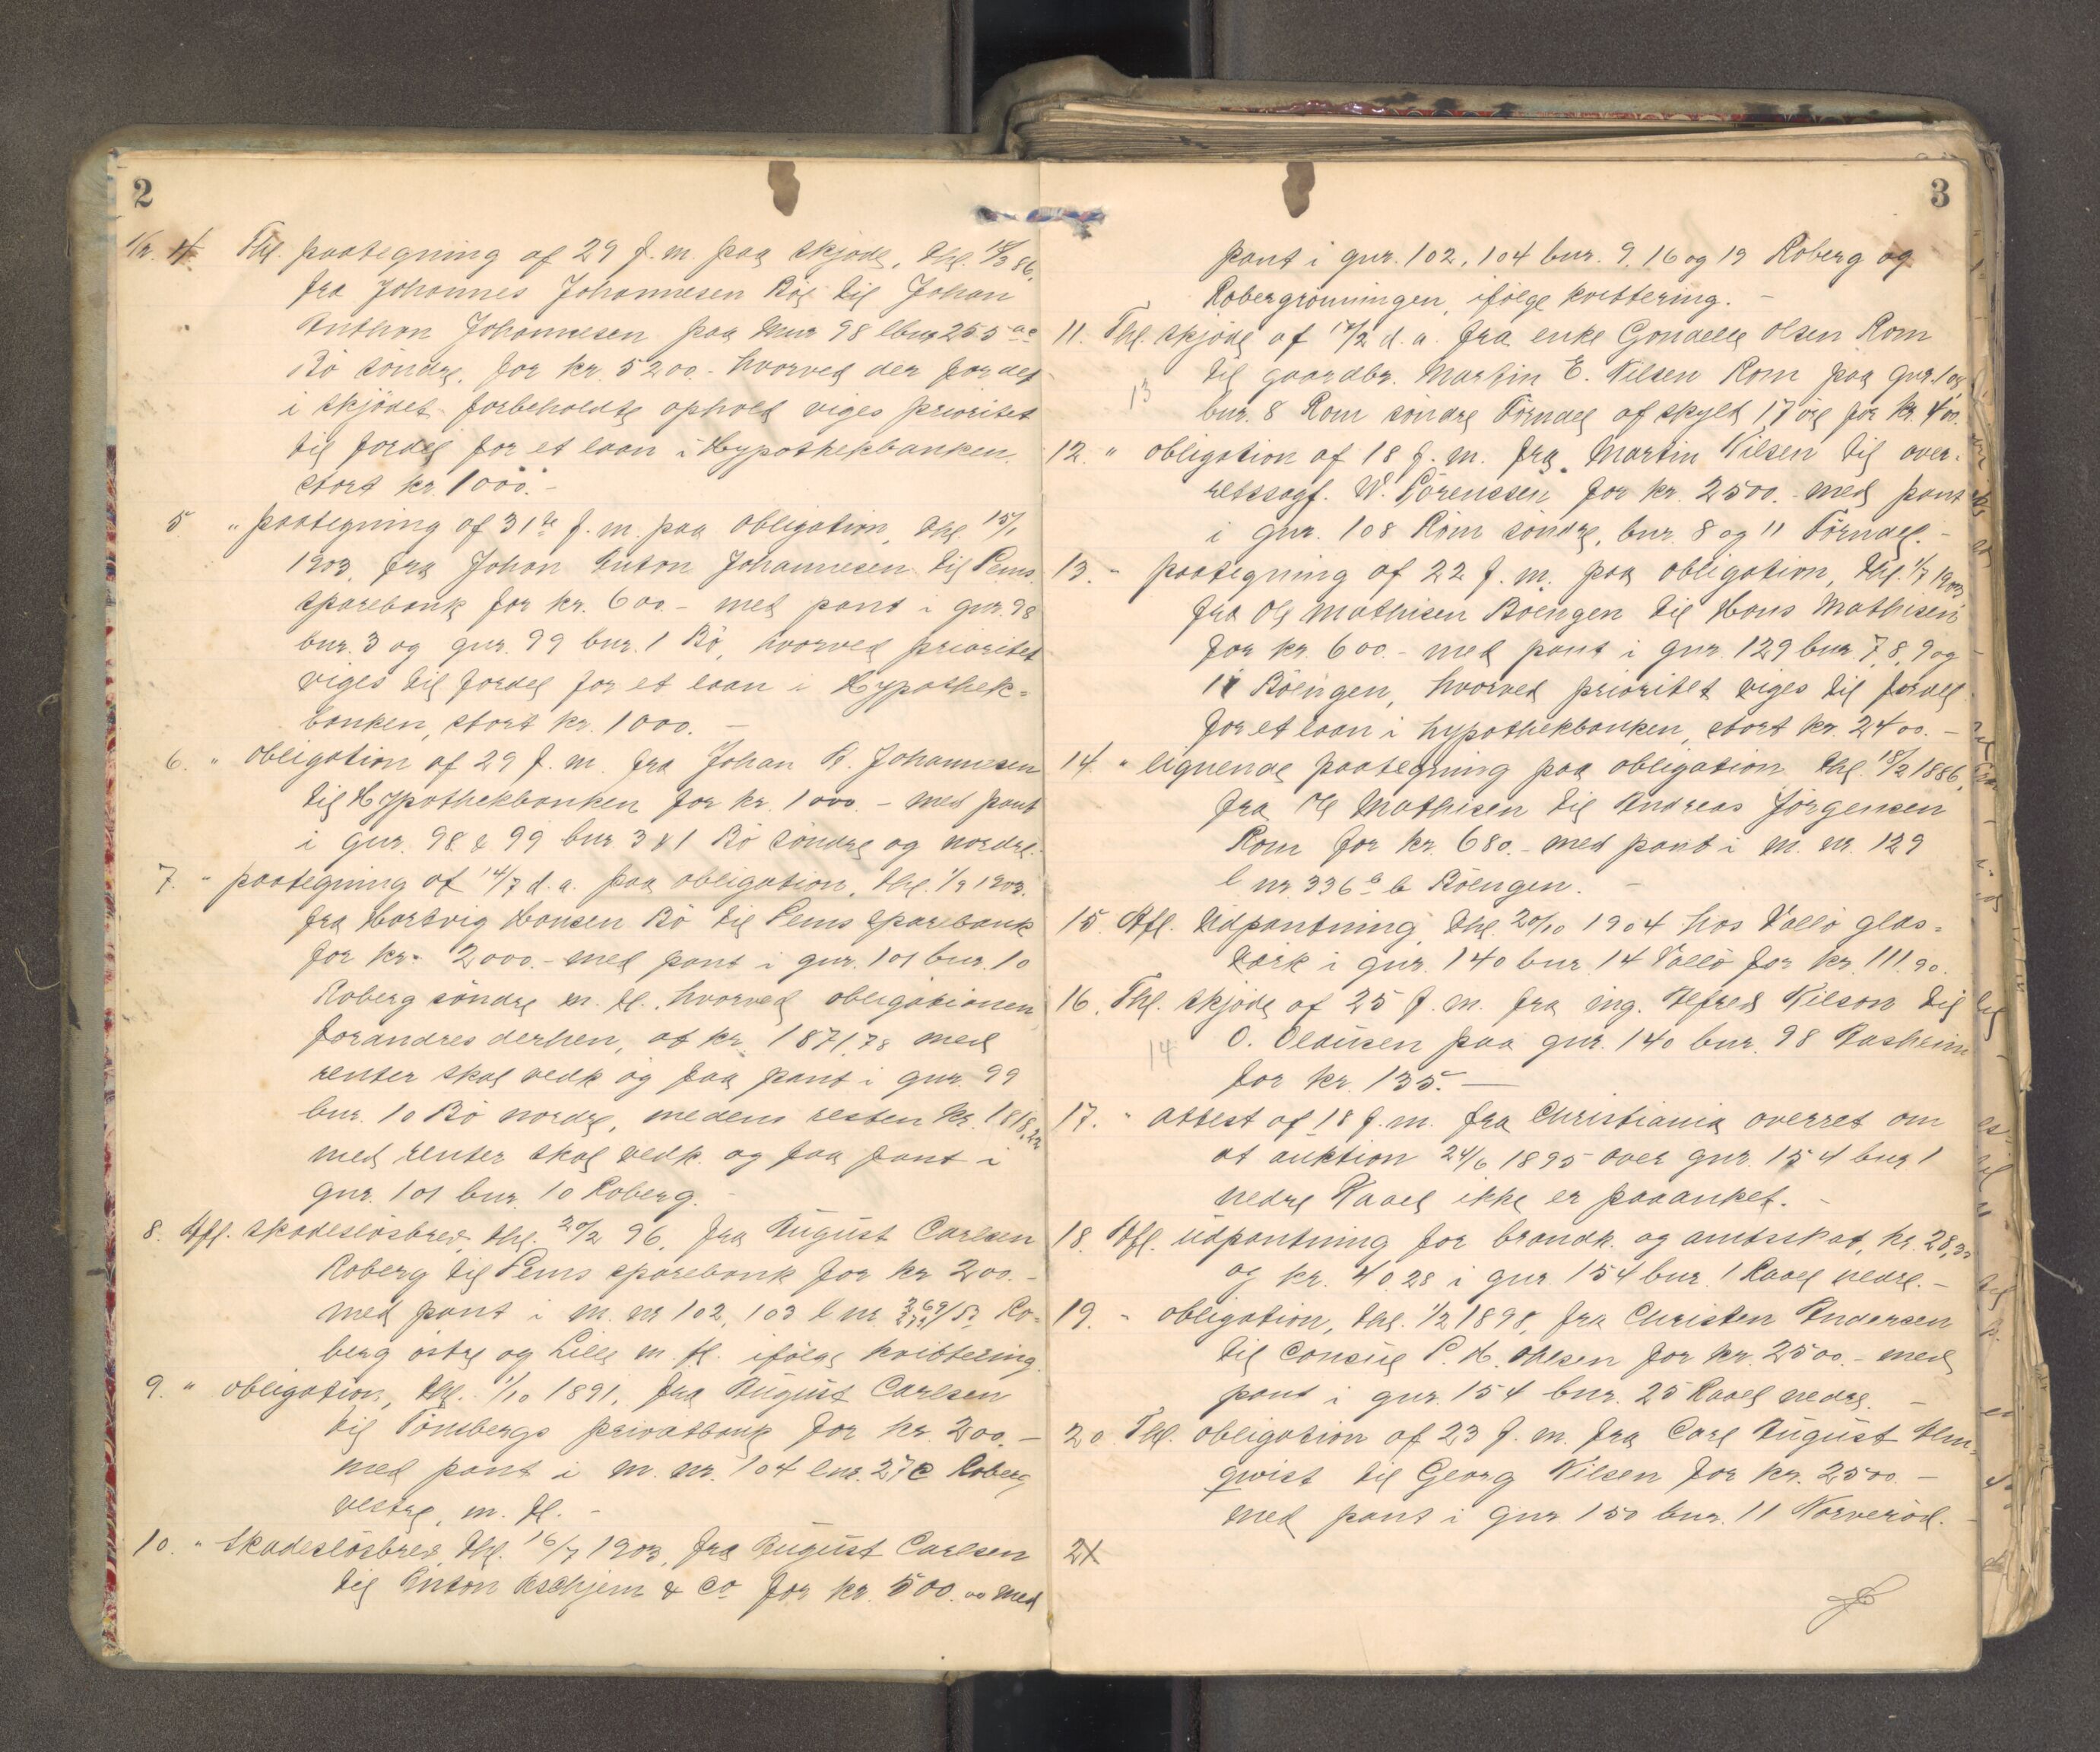 2
Nr. 4. Thl. paategning af 29 f. m. paa skjøde, thl. 18/3 86,
fra Johannes Johannesen Bø til Johan
Anthon Johannesen paa Mnr 98 lbnr 255 ac
Bø søndre, for kr. 5200.- hvorved der for det
i skjødet forbeholdte ophold viges prioritet
til fordel for et laan i Hypothekbanken,
stort kr. 1000.-
5 " paategning af 31te f. m. paa obligation, thl. 15/1
1903, fra Johan Anton Johannesen til Sems
sparebank for kr. 600.- med pant i gnr. 98
bnr. 3 og gnr. 99 bnr. 1 Bø, hvorved prioritet
viges til fordel for et laan i Hypothek-
banken, stort kr. 1000. -
6. " obligation af 29 f. m. fra Johan A. Johannesen
til Hypothekbanken for kr. 1000.- med pant
i gnr. 98 & 99 bnr 3 & 1 Bø søndre og nordre.
7. " paategning af 14/7 d. a. paa obligation, thl. 1/9 1903.
fra Hartvig Hansen Bø til Sems sparebank
for kr. 2000.- med pant i gnr. 101 bnr. 10
Roberg søndre m. fl., hvorved obligationen
forandres derhen, at kr. 1871,78 med
renter skal vedk og faa pant i gnr. 99
bnr. 10 Bø nordre, medens resten kr. 1818,22
med renter skal vedk. og faa pant i
gnr. 101 bnr. 10 Roberg. -
8. Afl. skadesløsbrev, thl. 20/2 96, fra August Carlsen
Roberg til Sems sparebank for kr 200.-
med pant i m. nr 102, 103 l nr. Ro-
berg østre og Lille m. fl. ifølge kvittering.
9. " obligation, thl. 1/10 1891, fra August Carlsen
til Tønsbergs privatbank for kr. 200.-
med pant i m. nr. 104 lnr. 27 c Roberg
vestre, m. fl. -
10. " Skadesløsbrev, thl. 16/7 1903, fra August Carlsen
til Anton Aschjem & Co for kr. 500.00 med
3
pant i gnr. 102, 104 bnr. 9, 16 og 19 Roberg og
Robergrønningen, ifølge kvittering. -
11. Thl. skjøde af 17/2 d. a. fra enke Gonaelle Olsen Rom
til gaardbr. Martin E. Nilsen Rom paa gnr. 108
13 bnr. 8 Rom søndre Tørndal af skyld 17 øre for kr. 400.
12. " obligation af 18 f. m. fra Martin Nilsen til over-
retssagf. W. Sørenssen for kr. 2500.- med pant
i gnr. 108 Rom søndre, bnr. 8 og 11 Tørndal. -
13. " paategning af 22 f. m. paa obligation, thl. 1/7 1903,
fra Ole Mathisen Bøengen til Hans Mathisen
for kr. 600.- med pant i gnr. 129 bnr. 7, 8, 9 og
11 Bøengen, hvorved prioritet viges til fordel
for et laan i hypothekbanken, stort kr. 2400. -
14. " lignende paategning paa obligation thl. 18/2 1886,
fra Ole Mathisen til Andreas Jørgensen
Rom for kr. 680.- med pant i m. nr. 129
l nr 336 a b Bøengen. -
15. Afl. Udpantning, thl. 20/10 1904 hos Vallø glas-
værk i gnr. 140 bnr. 14 Vallø for kr. 111.90.
16. Thl. skjøde af 25 f. m. fra ing. Alfred Nilson til
14 O. Olausen paa gnr. 140 bnr. 98 Aasheim
for kr. 135.-
17. " attest af 18 f. m. fra Christiania overret om
at auktion 24/6 1895 over gnr. 154 bnr 1
nedre Ravel ikke er paaanket. -
18. Afl. udpantning for brandk. og amtsskat, kr. 28,35
og kr. 40.28 i gnr. 154 bnr. 1 Ravel nedre. -
19. " obligation, thl. 1/2 1898, fra Christen Andersen
til Consul P. H. Ohlsen for kr. 2500.- med
pant i gnr. 154 bnr. 25 Ravel nedre. -
20 Thl. obligation af 23 f. m. fra Carl August Alm-
qvist til Georg Nilsen for kr. 2500.-
med pant i gnr 150 bnr. 11 Narverød.
21